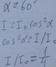 α = 60°
I = I₀ cos² α
cos² α = I / I₀
I / I₀ = 1/4